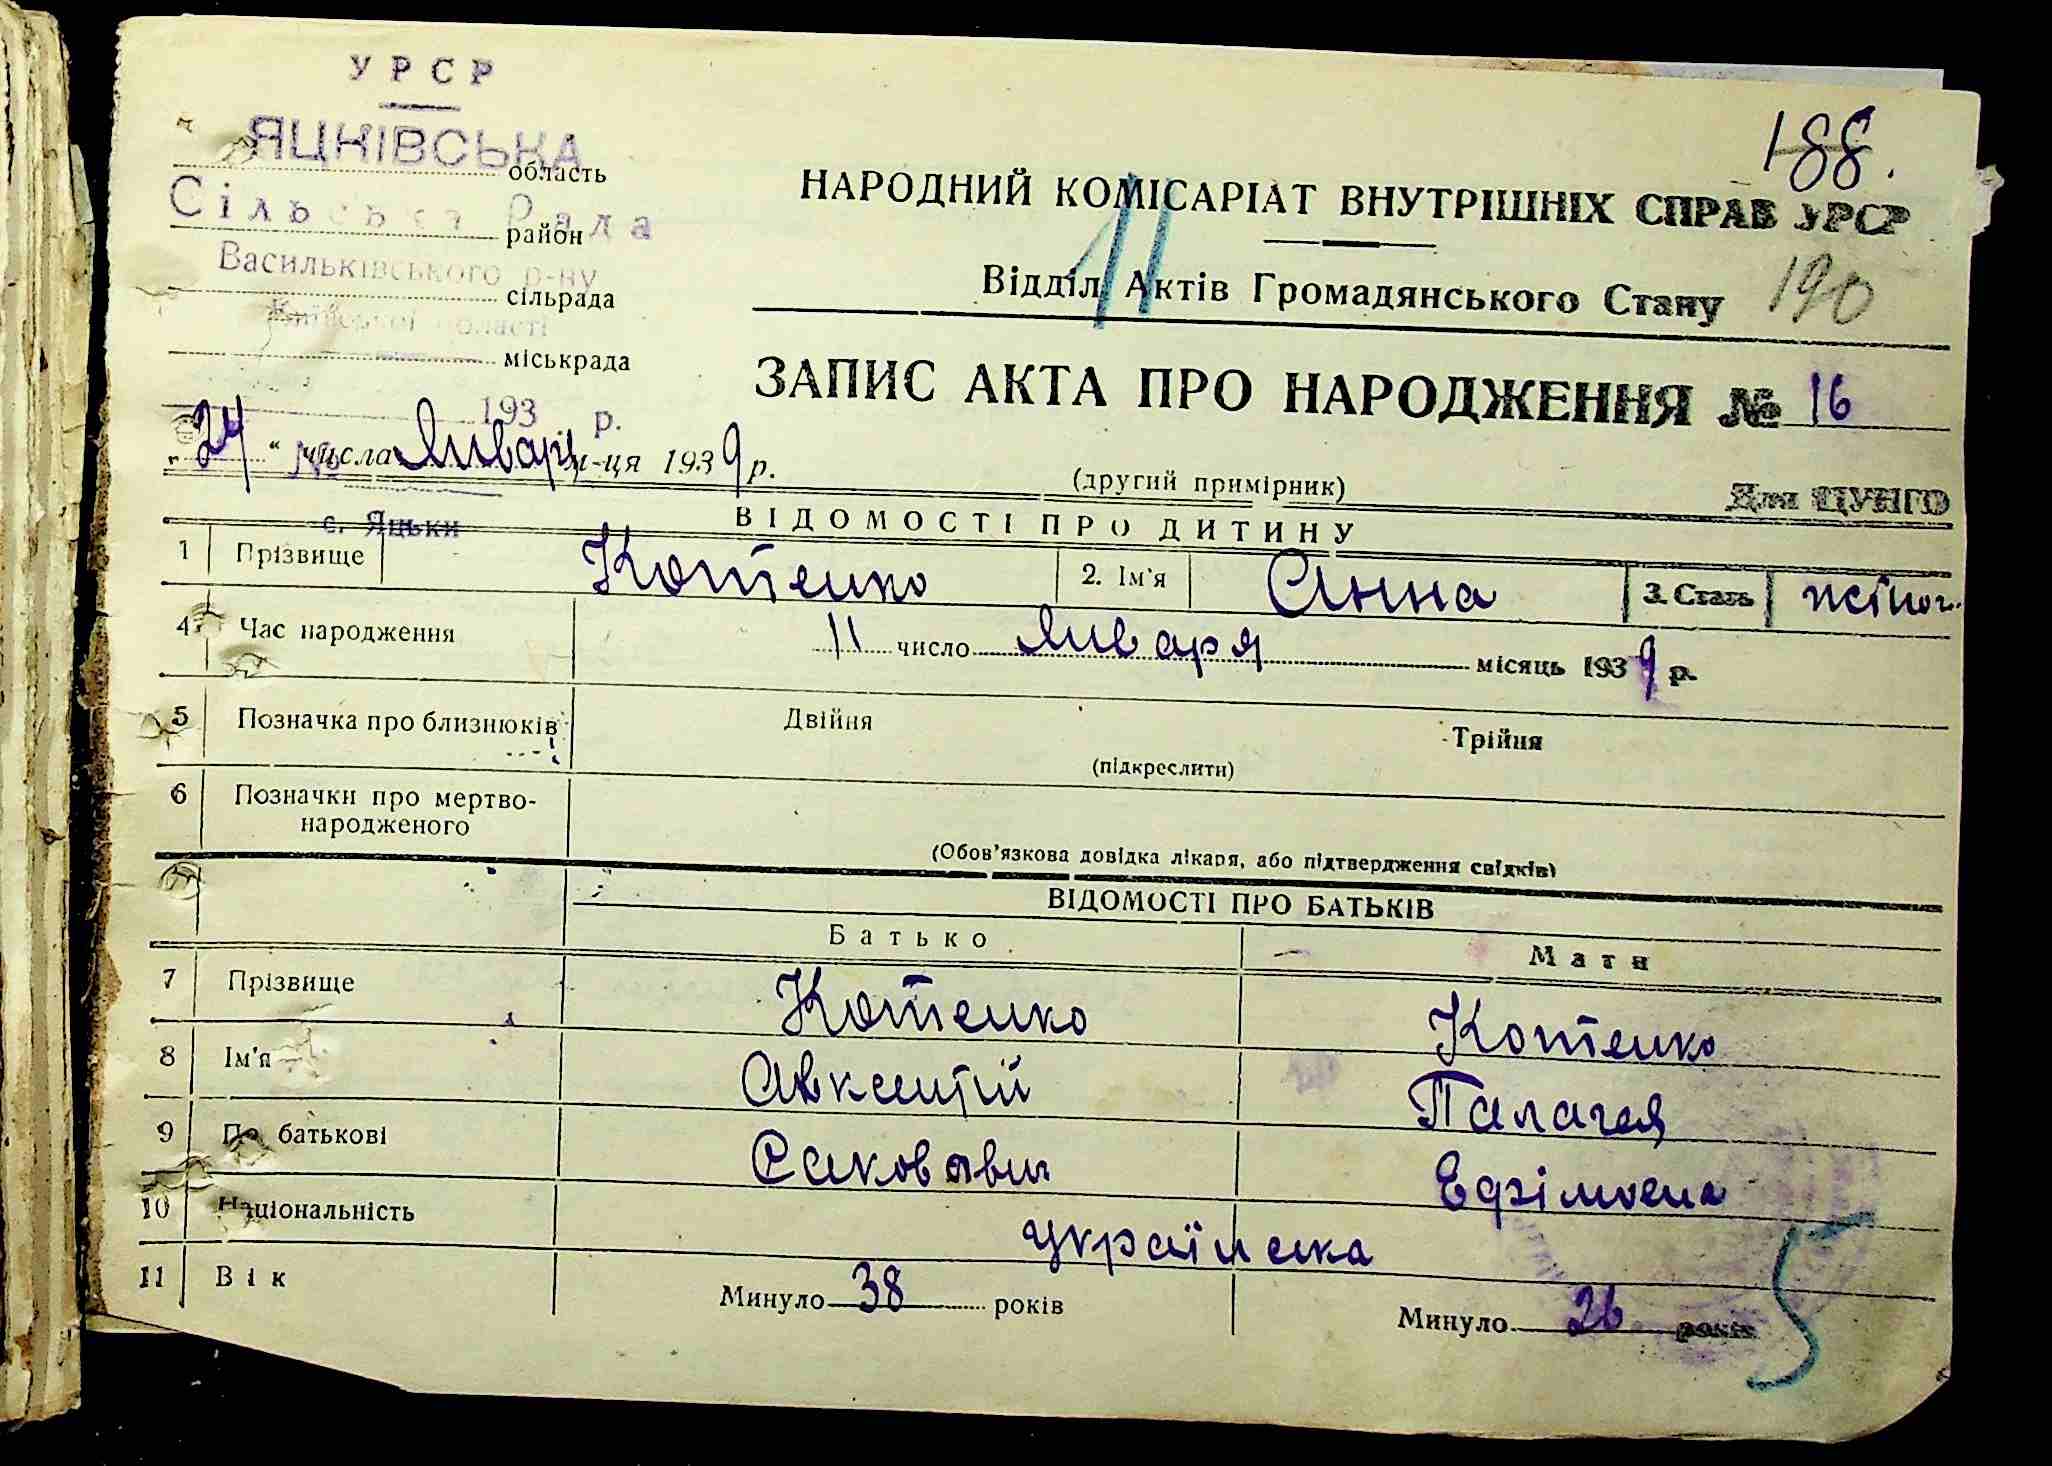 УРСР
ЯЦКІВСЬКА
область
Сільська Рада
район
Васильківського р-ну
сільрада
Київської області
міськрада
193 р.
188.
НАРОДНИЙ КОМІСАРІАТ ВНУТРІШНІХ СПРАВ УРСР
11
Відділ Актів Громадянського Стану
190
ЗАПИС АКТА ПРО НАРОДЖЕННЯ № 16
24 " числа Января м-ця 1939 р.
№
(другий примірник)
Для ЦУНГО
с. Яцьки
ВІДОМОСТІ ПРО ДИТИНУ
1 Прізвище Котенко 2. Ім'я Анна 3. Стать жіноч.
4 Час народження 11 число Января місяць 1939 р.
5 Позначка про близнюків Двійня Трійня
(підкреслити)
6 Позначки про мертво-
народженого
(Обов'язкова довідка лікаря, або підтвердження свідків)
ВІДОМОСТІ ПРО БАТЬКІВ
Батько Мати
7 Прізвище Котенко Котенко
8 Ім'я Авксентій Палагея
9 По батькові Єфімовна
10 Національність українська
11 Вік Минуло 38 років Минуло 26 років
5